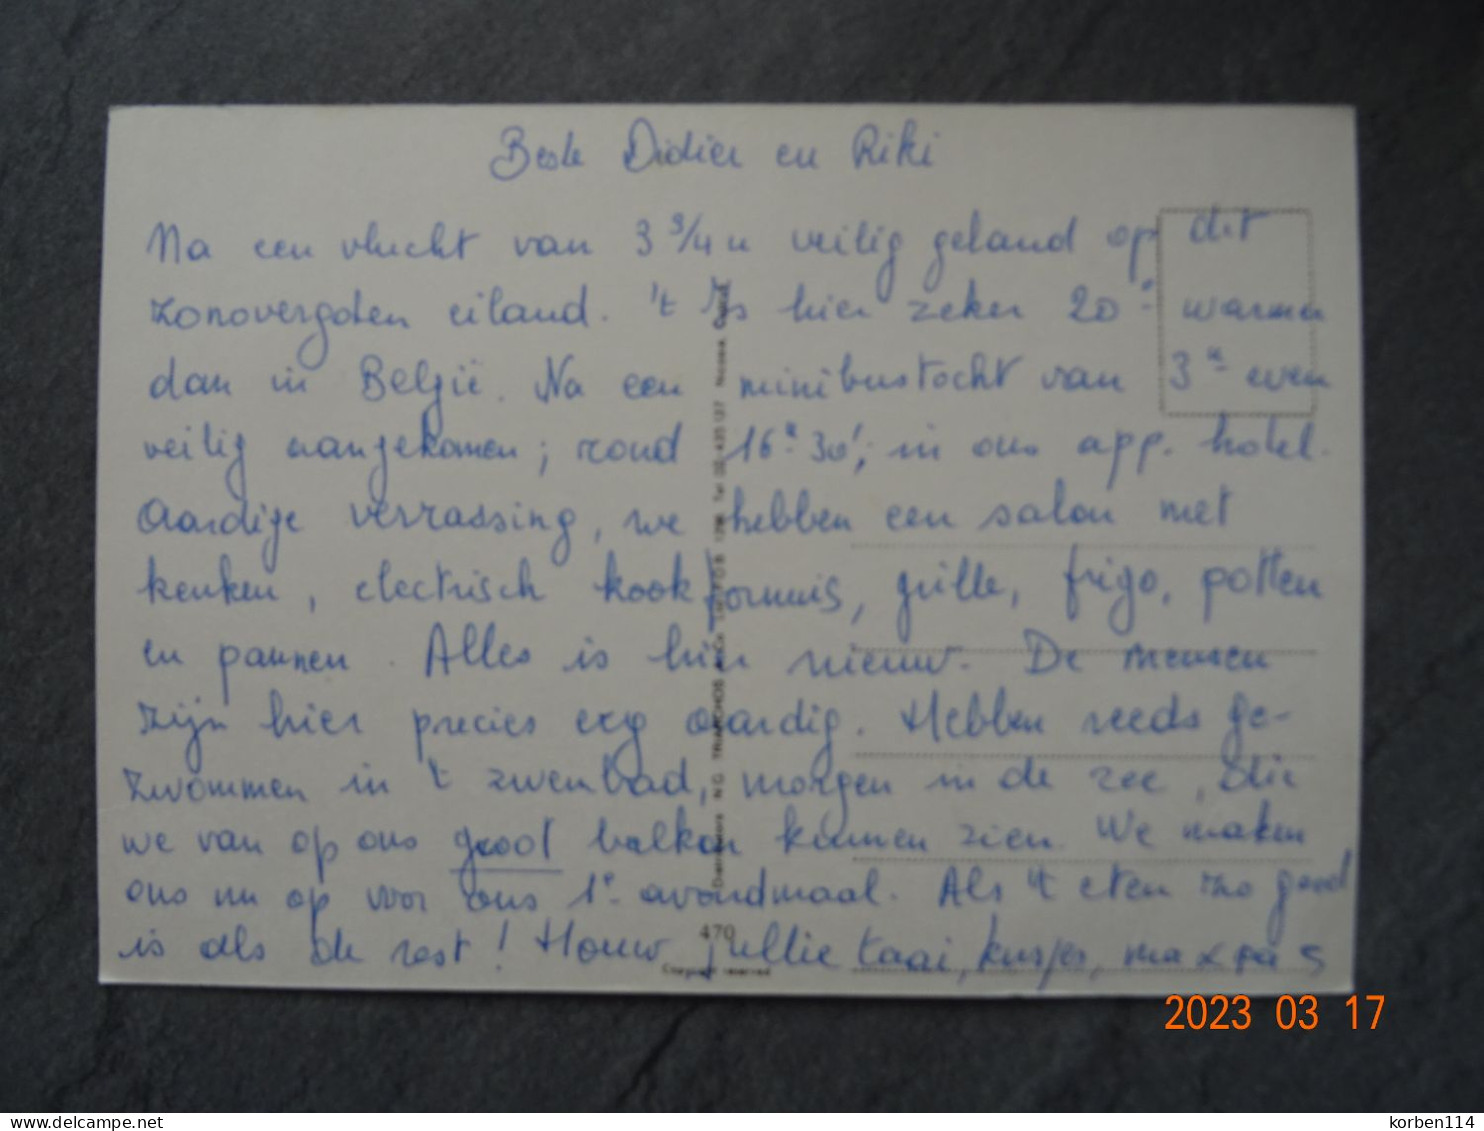 Beste Didier en Riki
Na een vlucht van 3 3/4 u veilig geland op dit
zonovergoten eiland. 't Is hier zeker 20° warmer
dan in België. Na een minibustocht van 3u even
veilig aangekomen; rond 16u 30'; in ons app. hotel.
Aardige verrassing, we hebben een salon met
keuken, electrisch kookfornuis, grille, frigo, potten
en pannen. Alles is hier nieuw. De mensen
zijn hier precies erg aardig. Hebben reeds ge-
zwommen in 't zwembad, morgen in de zee, die
we van op ons groot balkon kunnen zien. We maken
ons nu op voor ons 1e avondmaal. Als 't eten zo goed
is als de rest! Houw jullie taai, kusjes, ma x pa
Distributors N.G. Nicosia, Cyprus
470
Copyright reserved
2023 03 17
delcampe.net
korben114